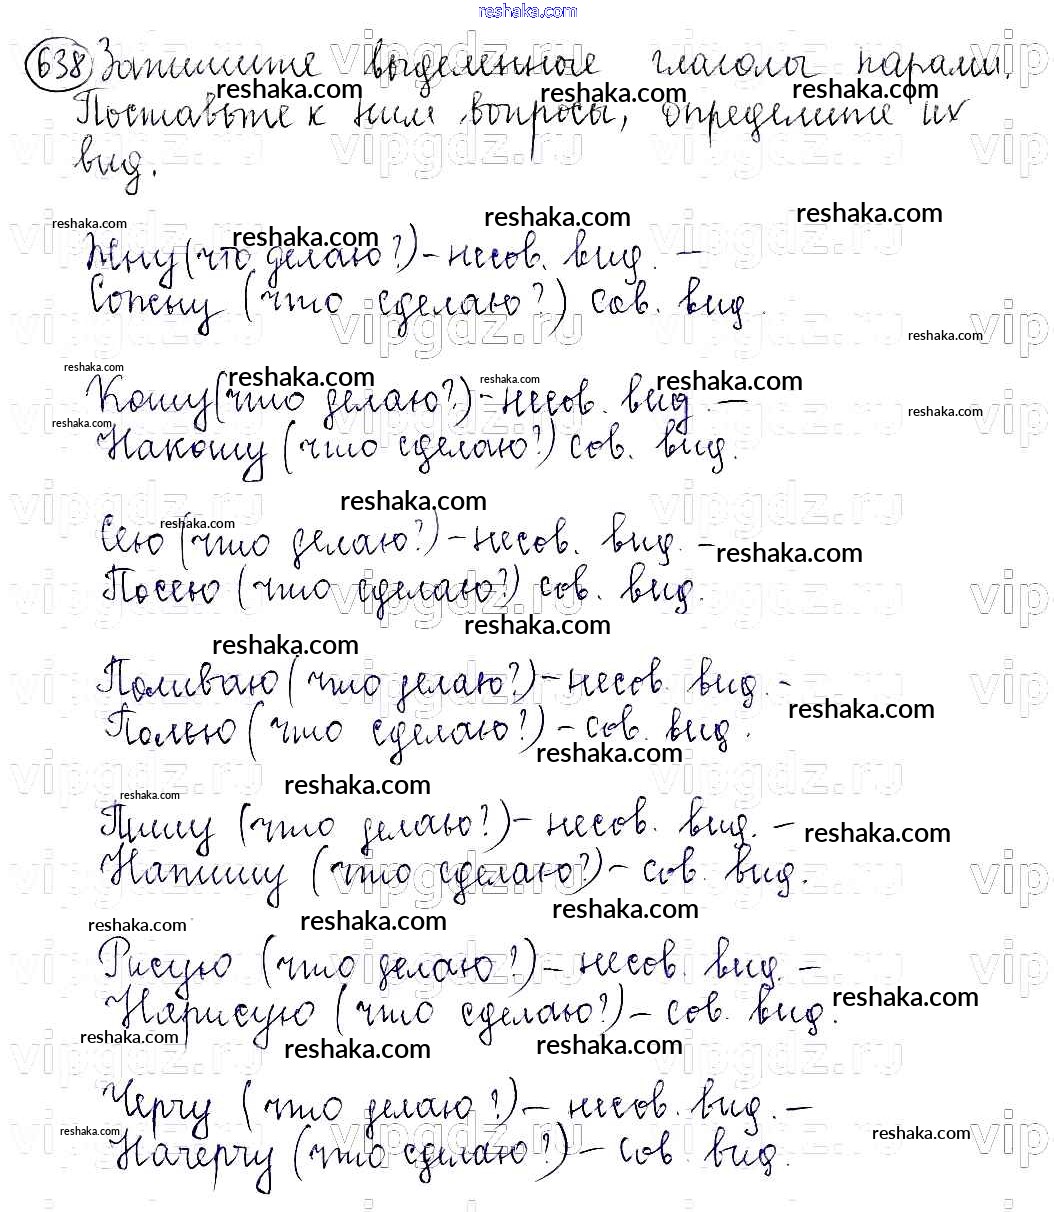 reshaka.com
638 Запишите выделенные глаголы парами.
Поставьте к ним вопросы, определите их
вид.
Жну (что делаю?) - несов. вид. -
Сожну (что сделаю?) сов. вид.
Кошу (что делаю?) - несов. вид. -
Накошу (что сделаю?) сов. вид.
Сею (что делаю?) - несов. вид. -
Посею (что сделаю?) сов. вид.
Поливаю (что делаю?) - несов. вид. -
Полью (что сделаю?) - сов. вид.
Пишу (что делаю?) - несов. вид. -
Напишу (что сделаю?) - сов. вид.
Рисую (что делаю?) - несов. вид. -
Нарисую (что сделаю?) - сов. вид.
Черчу (что делаю?) - несов. вид. -
Начерчу (что сделаю?) - сов. вид.